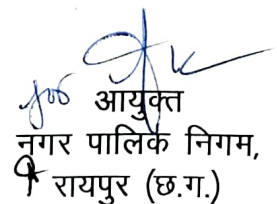 for आयुक्त
नगर पालिक निगम,
रायपुर (छ.ग.)